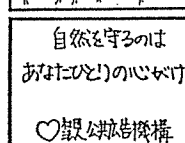 自然を守るのは
あなたひとりの心がけ
♡公共広告機構